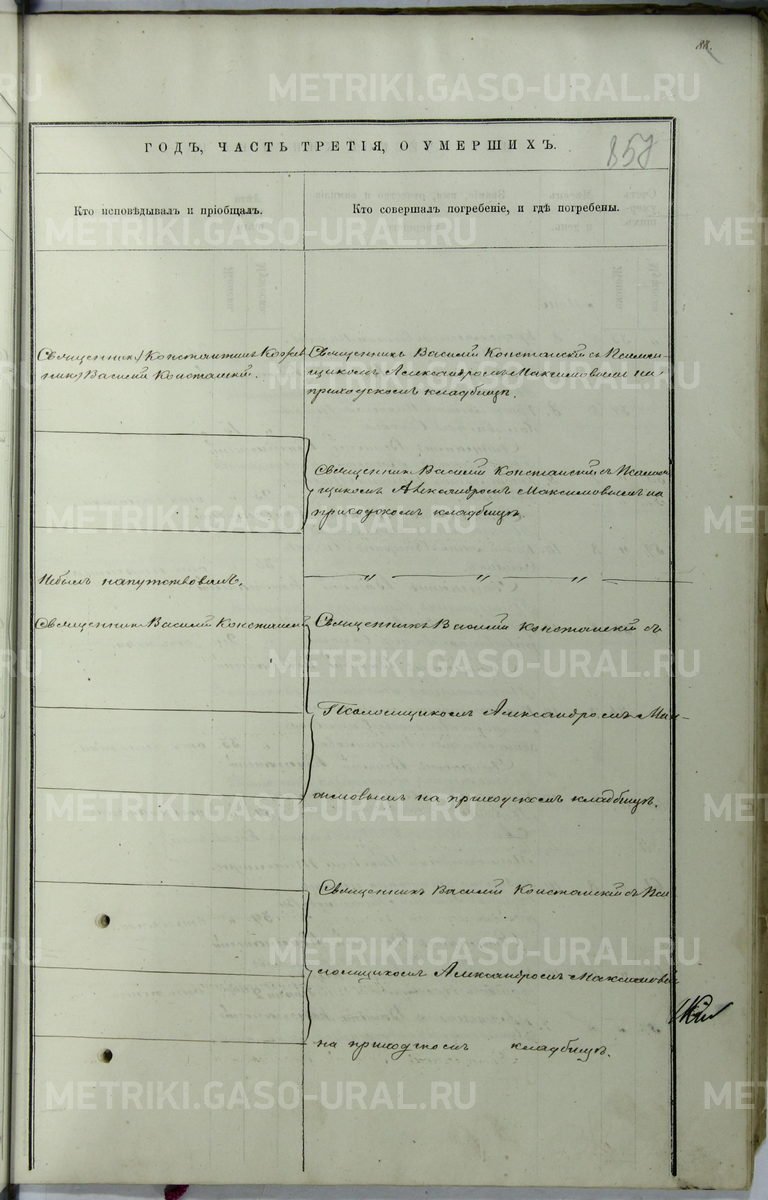 METRIKI.GASO-URAL.RU
ГОДЪ, ЧАСТЬ ТРЕТІЯ, О УМЕРШИХЪ.
857
Кто исповѣдывалъ и пріобщалъ.
Кто совершалъ погребеніе, и гдѣ погребены.
Священник Константинъ
Василій Констанскій.
Священникъ Василій Констанскій съ Псалом-
щикомъ Александромъ Максимовымъ на
приходскомъ кладбищѣ.
Священник Василій Констанскій съ Псалом
щикомъ Александромъ Максимовымъ на
приходскомъ кладбищѣ
Небылъ напутствованъ.
Священник Василій
Священникъ Василій Констанскій съ
Псаломщикомъ Александромъ Мак-
симовымъ на приходскомъ кладбищѣ.
Священникъ Василій Констанскій съ Пса
ломщикомъ Александромъ
на приходскомъ кладбищѣ.